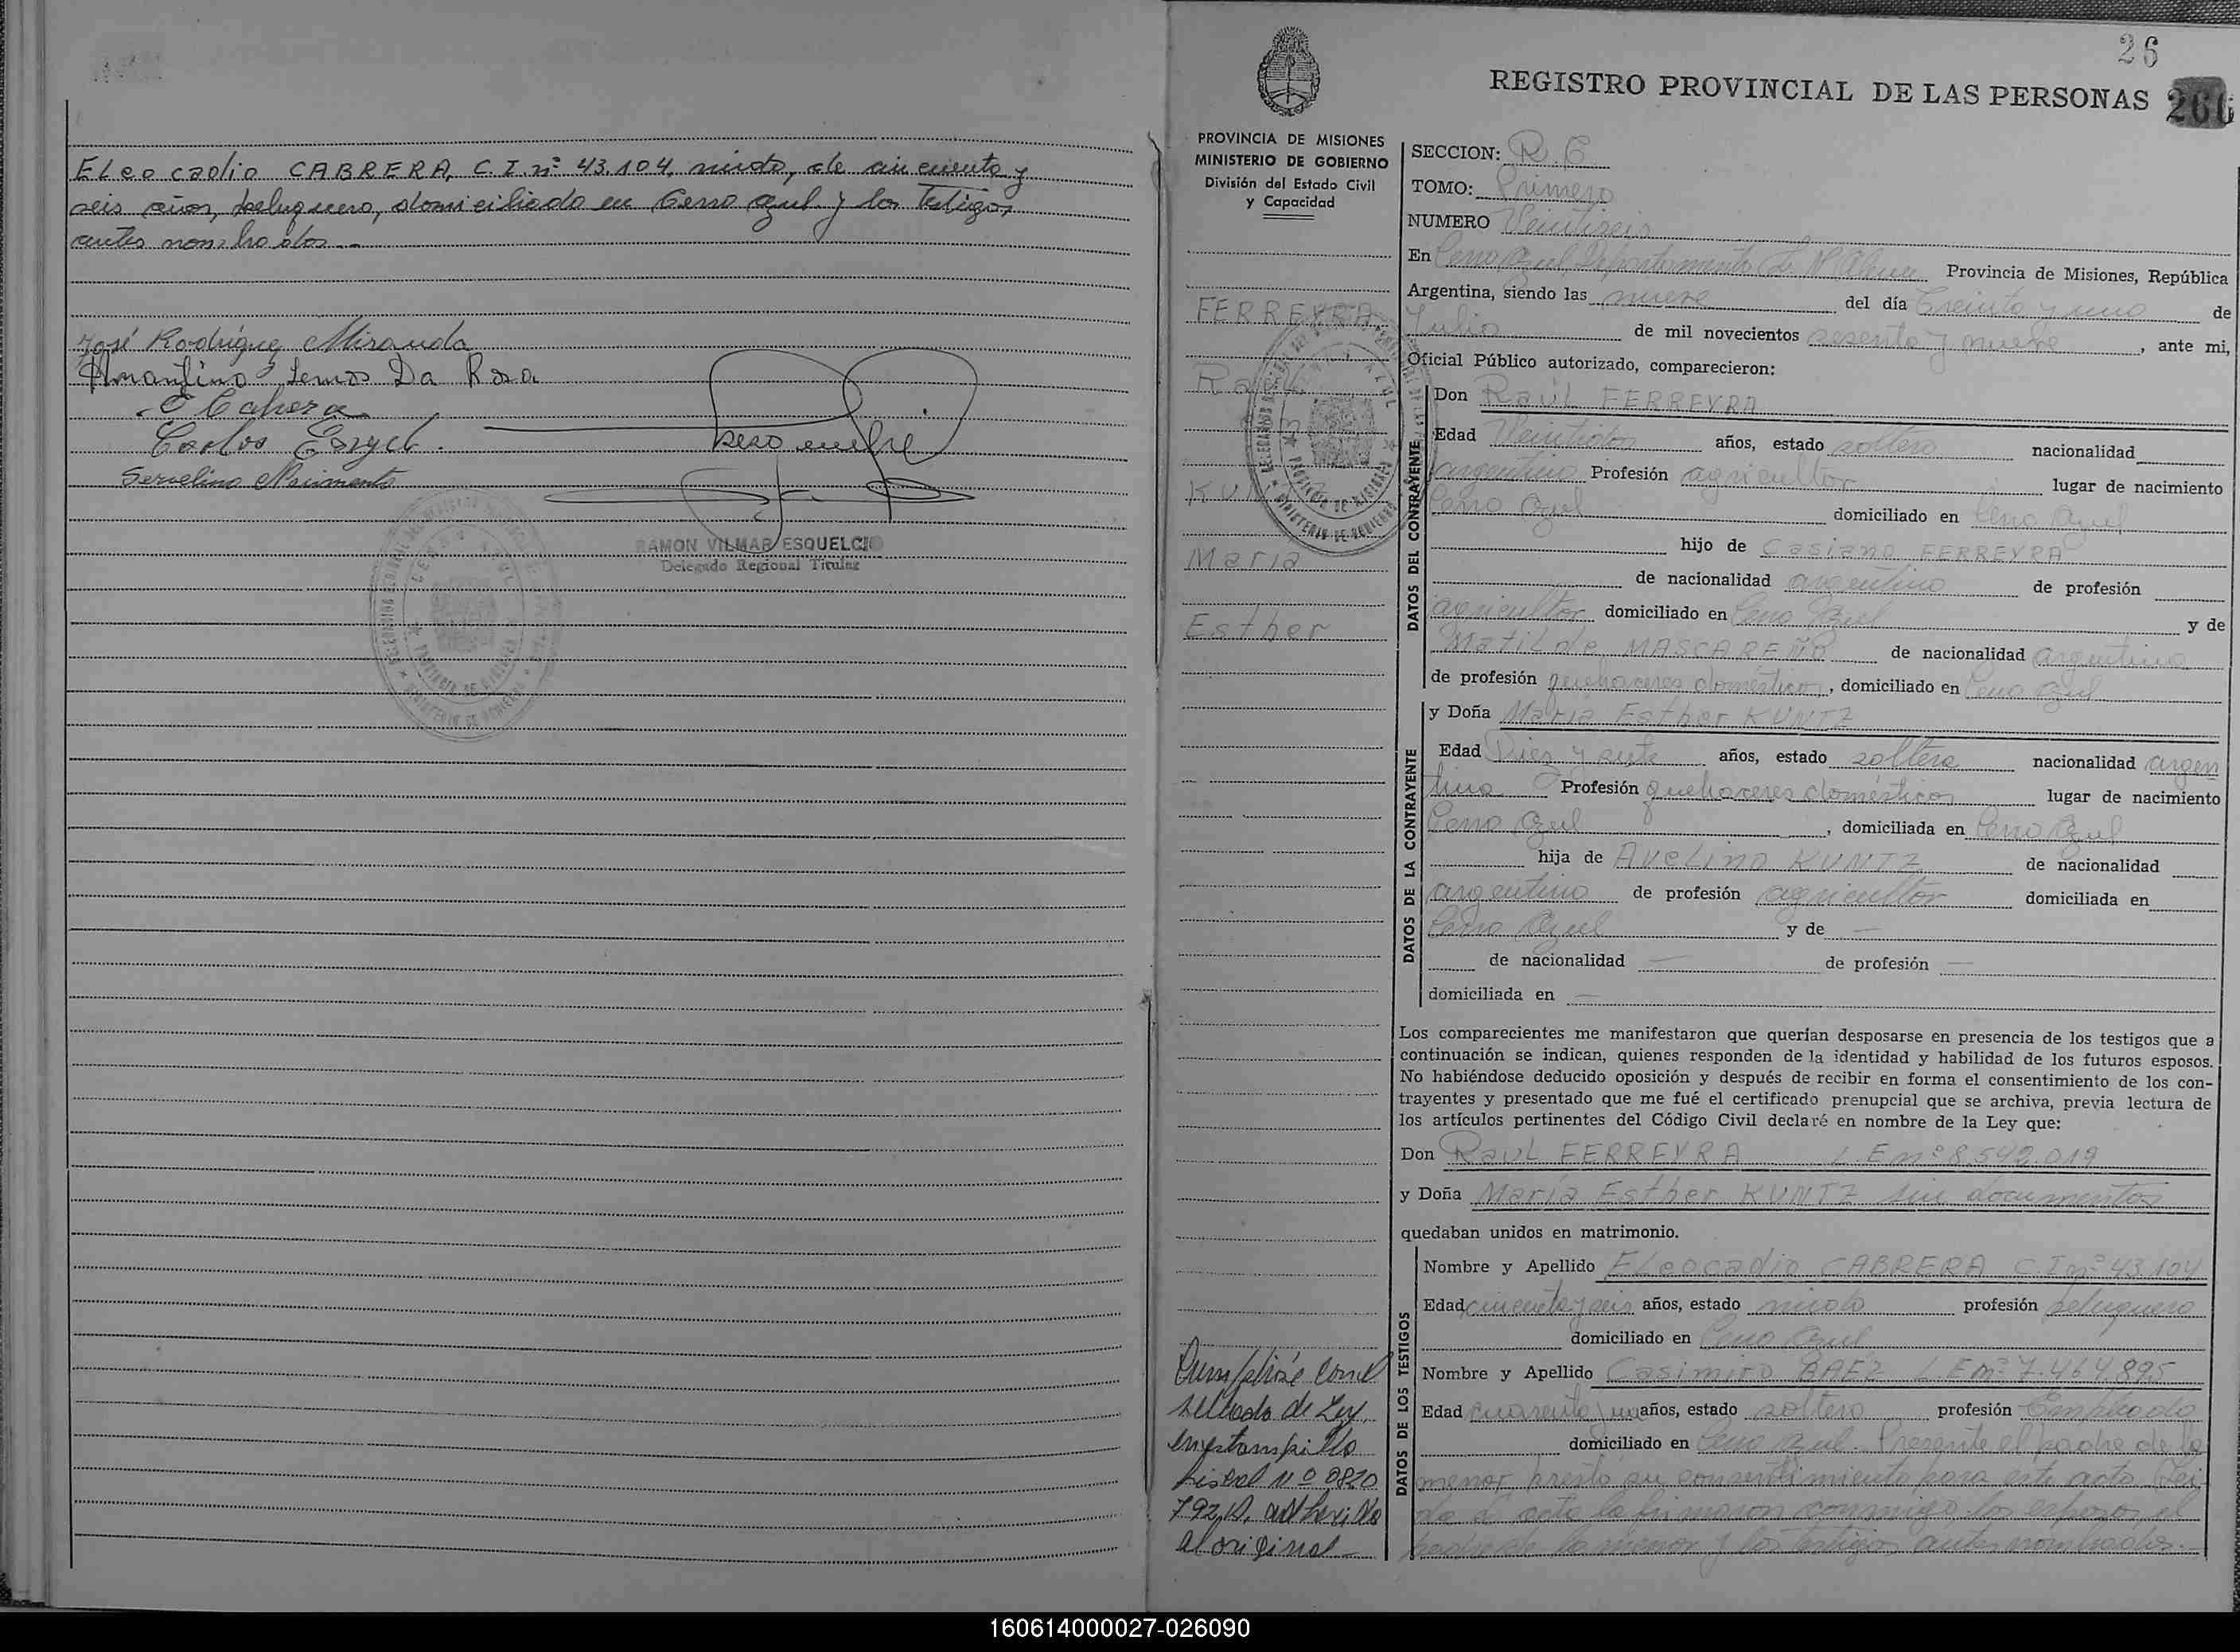 ELeocadio CABRERA, C.I. nº 43.104, viudo, de cincuenta y
seis años, peluquero, domiciliado en Cerro Azul y los Testigos
antes nombrados.-
José Rodriguez Miranda
Amantino Lemos Da Rosa
E Cabrera
Carlos
Servelino
RAMON VILMAR ESQUELCIO
Delegado Regional Titular
26
REGISTRO PROVINCIAL DE LAS PERSONAS
266
PROVINCIA DE MISIONES
MINISTERIO DE GOBIERNO
División del Estado Civil
y Capacidad
FERREYRA
Raúl
KUNTZ
María
Esther
Cumplióse con el
sellado de Ley,
en estampilla
fiscal nº 0820
792 adherida
al original-
SECCION:
TOMO: Primero
NUMERO Veintiseis
En Cerro Azul Departamento L. N. Alem Provincia de Misiones, República
Argentina, siendo las nueve del día Treinta y uno de
Julio de mil novecientos sesenta y nueve, ante mi,
Oficial Público autorizado, comparecieron:
DATOS DEL CONTRAYENTE
Don Raúl FERREYRA
Edad Veintidos años, estado soltero nacionalidad
argentino Profesión agricultor lugar de nacimiento
Cerro Azul domiciliado en Cerro Azul
hijo de Casiano FERREYRA
de nacionalidad argentino de profesión
agricultor domiciliado en Cerro Azul y de
MatiLde MASCAREÑO de nacionalidad argentina
de profesión quehaceres domésticos, domiciliado en Cerro Azul
DATOS DE LA CONTRAYENTE
y Doña María Esther KUNTZ
Edad Diez y siete años, estado soltera nacionalidad argen
tina Profesión quehaceres domésticos lugar de nacimiento
Cerro Azul, domiciliada en Cerro Azul
hija de AveLino KUNTZ de nacionalidad
argentino de profesión agricultor domiciliada en
Cerro Azul y de —
de nacionalidad — de profesión —
domiciliada en —
Los comparecientes me manifestaron que querían desposarse en presencia de los testigos que a
continuación se indican, quienes responden de la identidad y habilidad de los futuros esposos.
No habiéndose deducido oposición y después de recibir en forma el consentimiento de los con-
trayentes y presentado que me fué el certificado prenupcial que se archiva, previa lectura de
los artículos pertinentes del Código Civil declaré en nombre de la Ley que:
Don RauL FERREYRA L.E nº 8.542.019
y Doña María Esther KUNTZ sin documentos
quedaban unidos en matrimonio.
DATOS DE LOS TESTIGOS
Nombre y Apellido ELeocadio CABRERA C.I nº 43.104
Edad cincuenta y seis años, estado viudo profesión peluquero
domiciliado en Cerro Azul
Nombre y Apellido Casimiro BAEZ L.E nº 7.464.895
Edad cuarenta y un años, estado soltero profesión Empleado
domiciliado en Cerro Azul. Presente el padre de la
menor prestó su consentimiento para este acto. Lei-
da el acta la firmaron conmigo los esposos, el
padre de la menor y los testigos antes nombrados.-
160614000027-026090